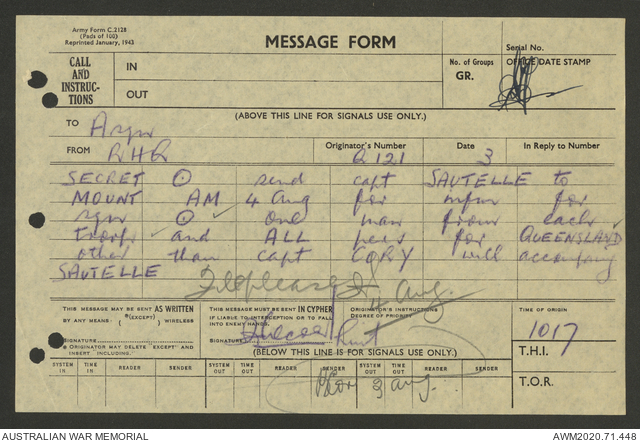 Army Form C.2128
(Pads of 100)
Reprinted January, 1943
MESSAGE FORM
Serial No.
CALL AND INSTRUC- TIONS
IN
OUT
No. of Groups
GR.
OFFICE DATE STAMP
(ABOVE THIS LINE FOR SIGNALS USE ONLY.)
TO A Sqn
FROM RHQ
Originator's Number
Q 121
Date
3
In Reply to Number
SECRET ⊙ send capt SAVTELLE to
MOUNT AM 4 Aug for mfur for
sqn ⊙ one man from each
troop and ALL pers for QUEENSLAND
other than capt CORY will accompany
SAVTELLE
File please 4 Aug.
THIS MESSAGE MAY BE SENT AS WRITTEN
BY ANY MEANS (EXCEPT) WIRELESS
SIGNATURE
ORIGINATOR MAY DELETE EXCEPT AND
INSERT INCLUDING.
THIS MESSAGE MUST BE SENT IN CYPHER
IF LIABLE TO INTERCEPTION OR TO FALL
INTO ENEMY HANDS.
SIGNATURE
ORIGINATOR'S INSTRUCTIONS
DEGREE OF PRIORITY
TIME OF ORIGIN
1017
(BELOW THIS LINE IS FOR SIGNALS USE ONLY.)
T.H.I.
SYSTEM IN
TIME IN
READER
SENDER
SYSTEM OUT
TIME OUT
READER
SENDER
SYSTEM OUT
TIME OUT
READER
SENDER
T.O.R.
3 Aug.
AUSTRALIAN WAR MEMORIAL
AWM2020.71.448